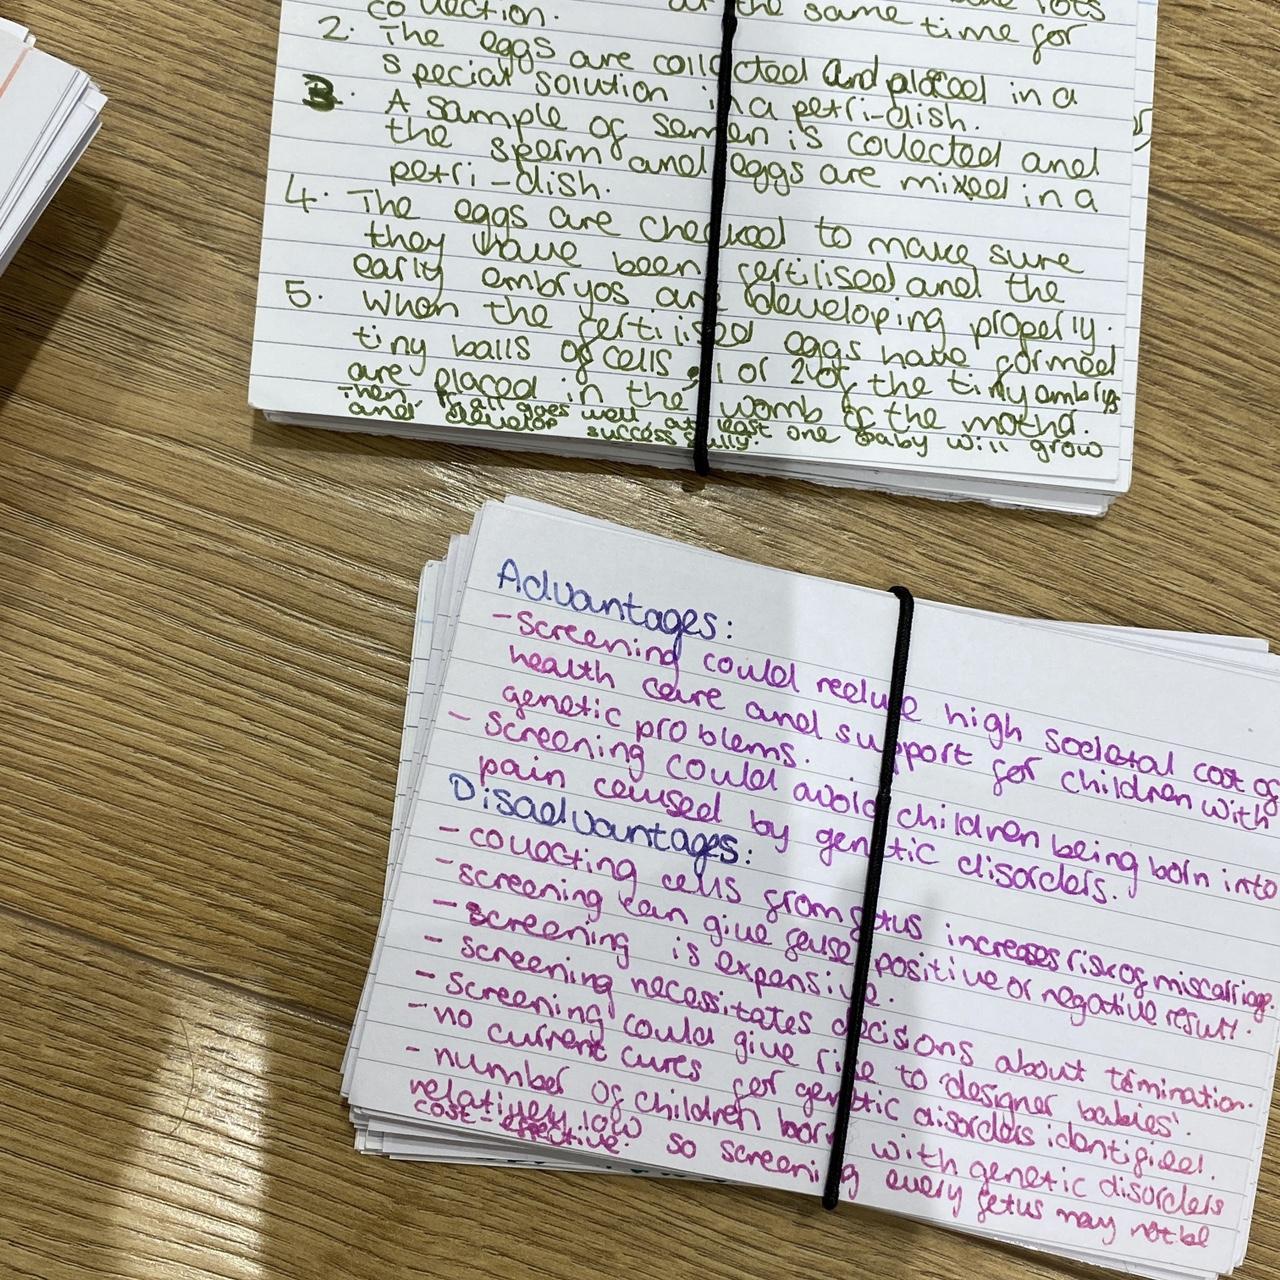 collection. at the same time for
2. The eggs are collected and placed in a
special solution in a petri-dish.
3. A sample of semen is collected and
the sperm and eggs are mixed in a
petri-dish.
4. The eggs are checked to make sure
they have been fertilised and the
early embryos are developing properly.
5. When the fertilised eggs have formed
tiny balls of cells, 1 or 2 of the tiny embryos
are placed in the womb of the mother.
Then if all goes well at least one baby will grow
and develop successfully.
Advantages:
- Screening could reduce high societal cost of
health care and support for children with
genetic problems.
- Screening could avoid children being born into
pain caused by genetic disorders.
Disadvantages:
- collecting cells from fetus increases risk of miscarriage.
- screening can give false positive or negative result.
- screening is expensive.
- screening necessitates decisions about termination.
- screening could give rise to 'designer babies'.
- no current cures for genetic disorders identified.
- number of children born with genetic disorders
relatively low so screening every fetus may not be
cost-effective.